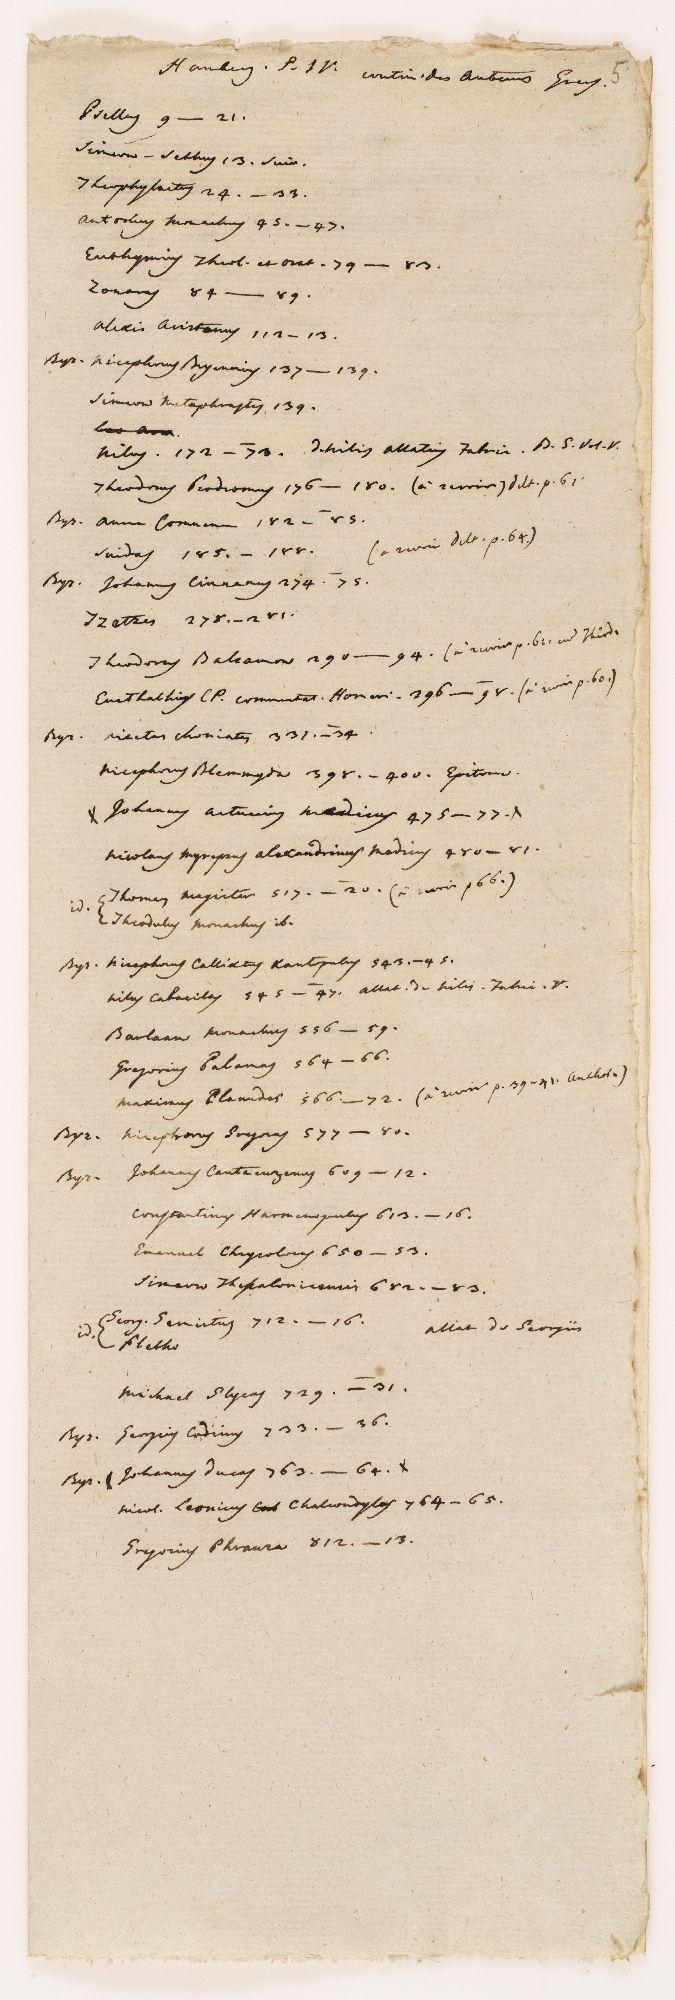 Hamberg. P. IV. contin. des auteurs Grecs. 5
Psellus 9 — 21.
Simeon-Sethus 13. suiv.
Theophylactus 24. — 33.
Antonius monachus 45. — 47.
Euthymius Theol. et orat. 79 — 83.
Zonaras 84 — 89.
Alexis Aristenus 112 — 13.
Byz. Nicephorus Bryennius 137 — 139.
Simeon metaphrastes 139.
Nilus. 172 — 73. de Nilis Allatius Fabric. B. G. Vol. V.
Theodorus Prodromus 176 — 180. (à revoir) delt. p. 61.
Byz. Anna Comnena 182 — 85.
Suidas 185. — 188. (à revoir delt. p. 64.)
Byz. Johannes Cinnamus 274. — 75.
Tzetzes 278. — 281.
Theodorus Balsamon 290 — 94. (à revoir p. 61.
Eustathius CP. commentat. Homeri. 296 — 98. (à revoir p. 60.)
Byz. Nicetas choniates 331. — 34.
Nicephorus Blemmyda 398. — 400. Epitome.
Johannes actuarius medicus 475 — 77.
Nicolaus myrepsus alexandrinus medicus 480 — 81.
id. { Thomas magister 517. — 20. (à revoir p 66.)
Theodulus monachus ib.
Byz. Nicephorus Callixtus Xantopulus 543. — 45.
Nilus Cabasilas 545 — 47. allat. de Nilis. Fabric. V.
Barlaam monachus 556 — 59.
Gregorius Palamas 564 — 66.
Maximus Planudes 566. — 72. (à revoir p. 39-41. Anthol.)
Byz. Nicephorus Gregoras 577 — 80.
Byz. Johannes Cantacuzenus 609 — 12.
Constantinus Harmenopulus 613. — 16.
Emanuel Chrysoloras 650 — 53.
Simeon Thessalonicensis 682. — 83.
id. { Georg. Gemistus 712. — 16. allat. de Georgiis
Pletho
Michael Glycas 729. — 31.
Byz. Georgius Codinus 733. — 36.
Byz. Johannes Ducas 763. — 64.
Nicol. Leonicus Chalcondylas 764 — 65.
Gregorius Phranza 812. — 13.